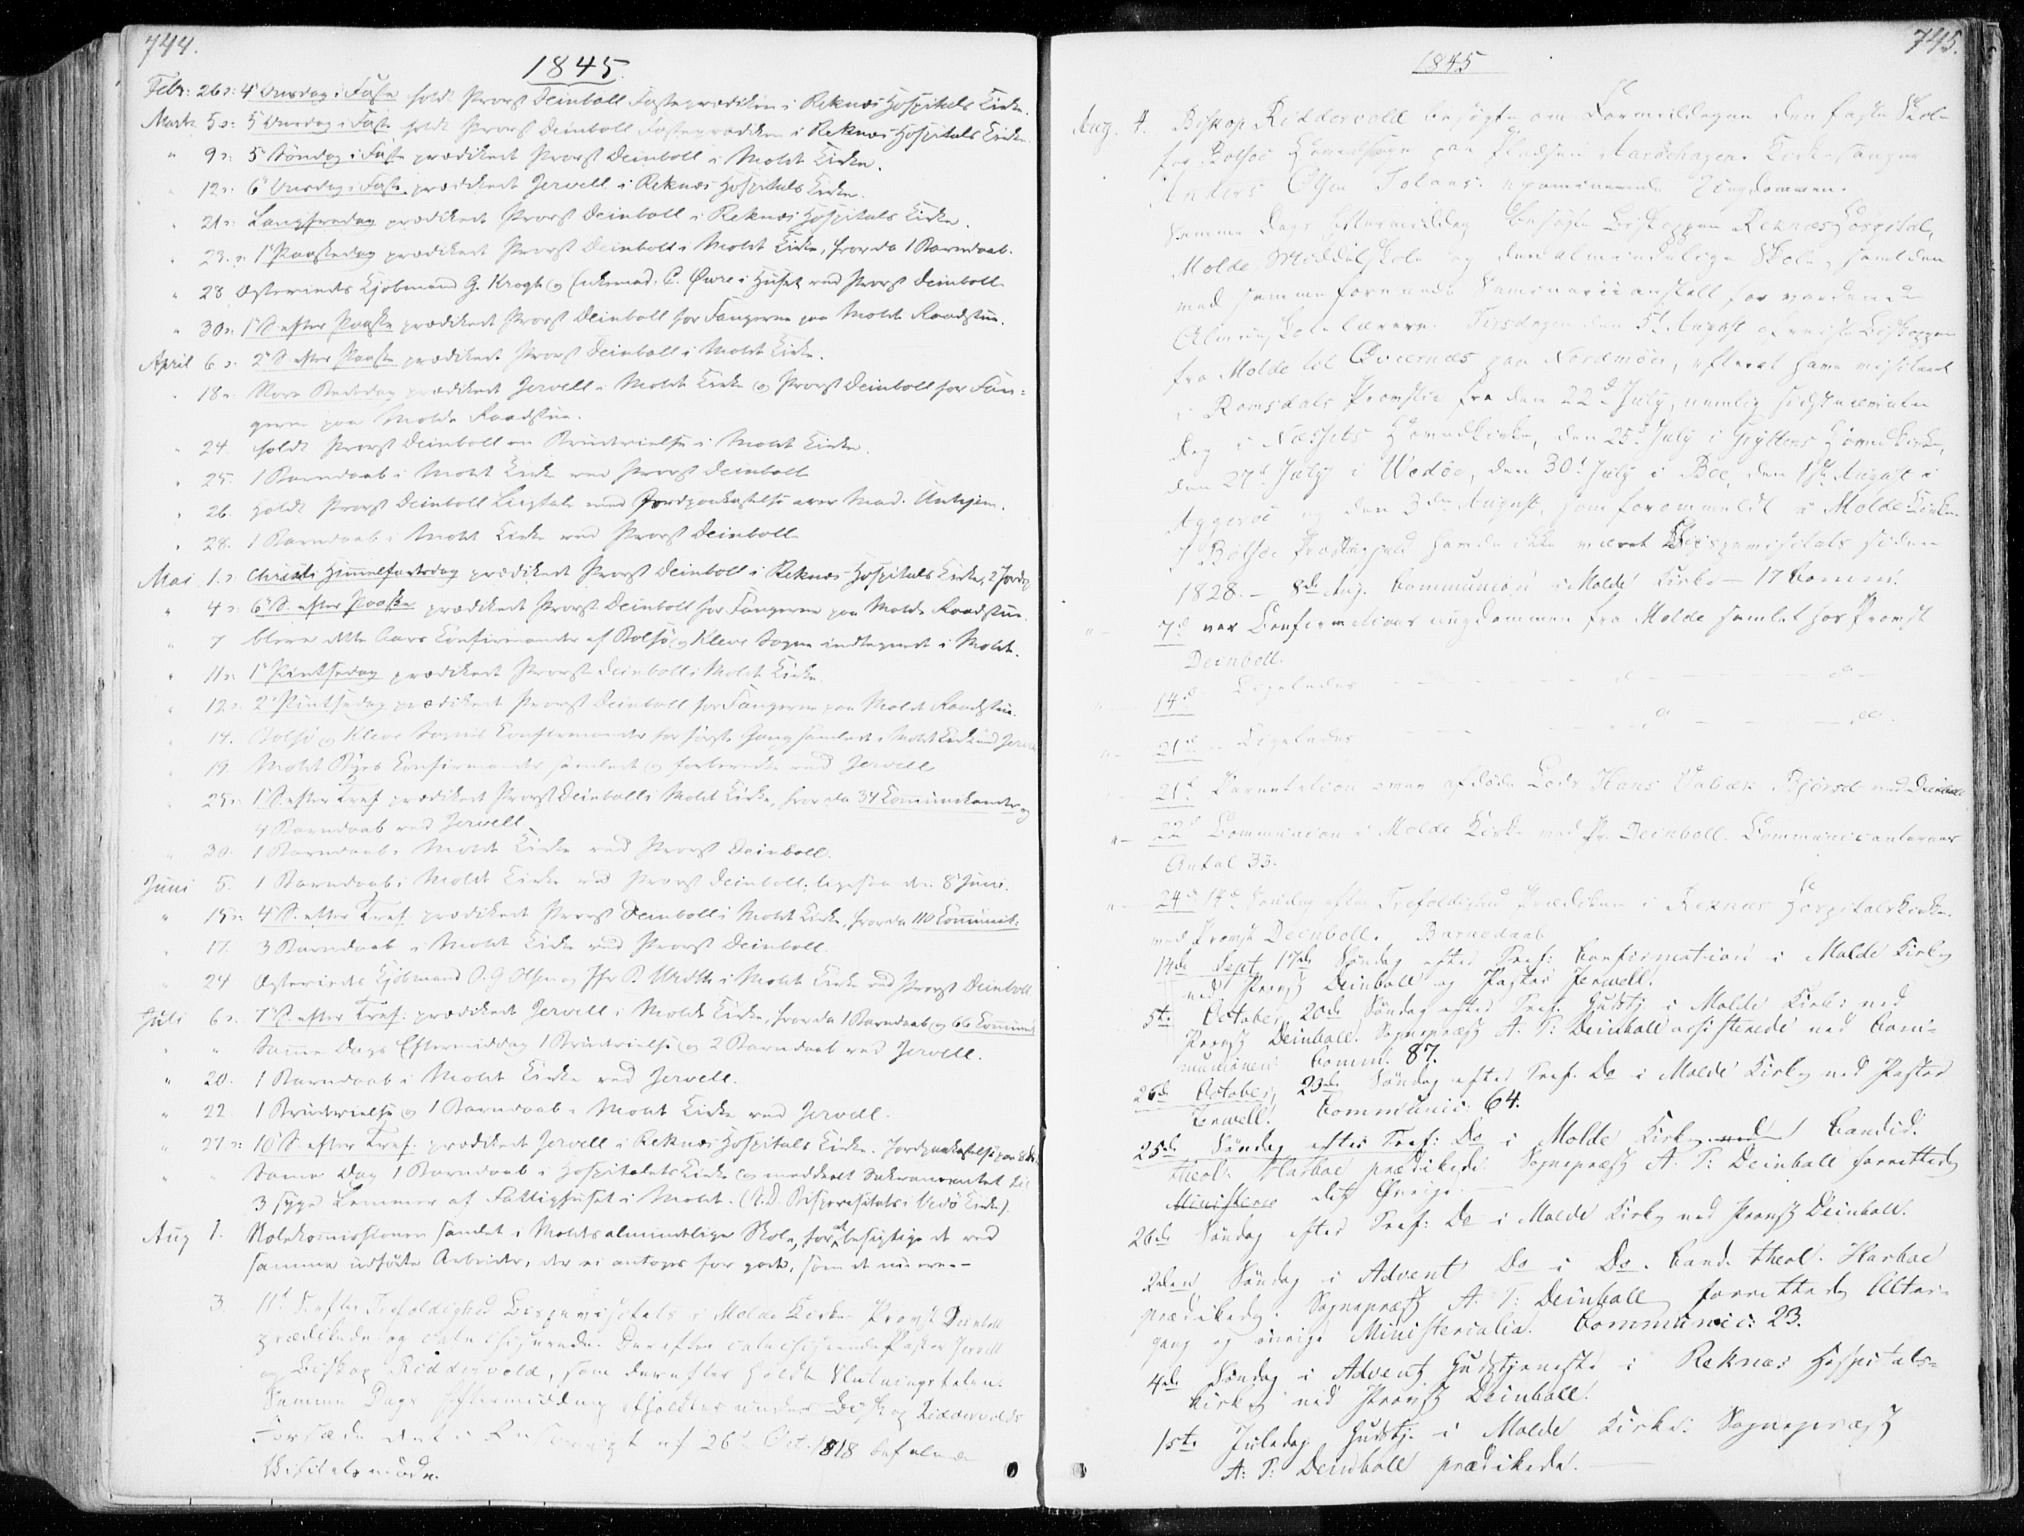 744.
1845.
Febr: 26 ɔ: 4 Onsdag i Faste holdt Provst Deinboll Fasteprædiken i Reknæs Hospitals Kirke.
Marts 5 ɔ: 5 Onsdag i Faste holdt Provst Deinboll Fasteprædiken i Reknæs Hospitals Kirke.
" 9 ɔ: 5 Søndag i Faste prædikede Provst Deinboll i Molde Kirke.
" 12 ɔ: 6 Onsdag i Faste prædikede Jervell i Reknæs Hospitals Kirke.
" 21 ɔ: Langfredag prædikede Provst Deinboll i Reknæs Hospitals Kirke.
" 23. ɔ: 1 Paaskedag prædikede Provst Deinboll i Molde Kirke, hvor da 1 Barnedaab.
" 28 Ægteviedes Kjøbmand G. Krogh og Enkemad. C. Øwre i Huset ved Provst Deinboll
" 30 ɔ: 1 S. efter Paaske prædikede Provst Deinboll for Fangerne paa Molde Raadstue.
April 6 ɔ: 2 S. efter Paaske prædikede Provst Deinboll i Molde Kirke.
" 18 ɔ: Store Bededag prædikede Jervell i Molde Kirke og Provst Deinboll for Fan-
gerne paa Molde Raadstue.
" 24 holdt Provst Deinboll en Brudevielse i Molde Kirke.
" 25. 1 Barnedaab i Molde Kirke ved Provst Deinboll
" 26. Holdt Provst Deinboll Liigtale med Jordpaakastelse over Mad.
" 28. 1 Barnedaab i Molde Kirke ved Provst Deinboll
Mai 1. ɔ: Christi Himmelfartsdag prædikede Provst Deinboll i Reknæs Hospitals Kirke, 2 Jordp.
" 4 ɔ: 6 S. efter Paaske prædikede Provst Deinboll for Fangerne paa Molde Raadstue.
" 7 bleve dette Aars Confirmander af Bolsø og Kleve Sogne indtegnede i Molde.
" 11 ɔ: 1 Pintsedag prædikede Provst Deinboll i Molde Kirke.
" 12 ɔ: 2 Pintsedag prædikede Provst Deinboll for Fangerne paa Molde Raadstue.
" 14. Bolsø og Kleve Sognes Confirmander for første Gang samlede i Molde Kirke ved Jervell
" 19. Molde Byes Confirmander samlede og forberedte ved Jervell
" 25 ɔ: 1 S. efter Tref. prædikede Provst Deinboll i Molde Kirke, hvor da 34 Communikanter og
4 Barnedaab ved Jervell.
" 30. 1 Barnedaab i Molde Kirke ved Provst Deinboll.
Juni 5. 1 Barnedaab i Molde Kirke ved Provst Deinboll; ligesaa den 8 Juni.
" 15 ɔ: 4 S. efter Tref. prædikede Provst Deinboll i Molde Kirke, hvor da 110 Communik:
" 17. 3 Barnedaab i Molde Kirke ved Provst Deinboll.
" 24 Ægteviedes Kjøbmand O. G. Olsen og Jfr. i Molde Kirke ved Provst Deinboll.
Juli 6 ɔ: 7 S. efter Tref. prædikede Jervell i Molde Kirke, hvor da 1 Barnedaab og 66 Communik
" " Samme Dags Eftermiddag 1 Brudevielse og 2 Barnedaab ved Jervell.
" 20. 1 Barnedaab i Molde Kirke ved Jervell.
" 22. 1 Brudevielse og 1 Barnedaab i Molde Kirke ved Jervell.
" 27 ɔ: 10 S. efter Tref. prædikede Jervell i Reknæs Hospitals Kirke. Jordpaakastelse paa
" " Samme Dag 1 Barnedaab i Hospitalets Kirke og meddeelt Sakramentet til
3 syge Lemmer af Fattighuset i Molde. (N.B. Bispevisitats i Vedø Kirke).
Aug 1. Skolekomissionen samlet i Moldes almindelige Skole, for at besigtige de ved
samme udførte Arbeider, der ei antoges for gode, som de nu ere. -
3. 11te S. efter Trefoldighed Bispevisitats i Molde Kirke. Provst Deinboll
prædikede og catechiserede. Derefter catechiserede Pastor Jervell
og Biskop Riddervold, som derefter holdt Slutningstalen.
Samme Dags Eftermiddag afholdtes under Biskop Riddervolds
Forsæde det i Rescript af 26de Oct. 1818 befalede
Visitatsmøde.
745.
1845
Aug. 4. Biskop Riddervold besøgte om Formiddagen den faste Skole
for Bolsøe Hovedsogn paa Pladsen Aarøehagen. Kirkesanger
Anders Olsen examinerede Ungdommen.
Samme Dags Eftermiddag besøgte Biskoppen Reknæs Hospital,
Molde Middelskole og den almindelige Skole, samt den
med samme forenede Seminarieanstalt for vordende
Almueskolelærere. Tirsdagen den 5te August afreiste Biskoppen
fra Molde til Qvernæs paa Nordmøer, efterat have visiteret
i Romsdals Provstie fra den 22de July, nemlig sidstnævnte
Dag i Næssets Hovedkirke, den 25de July i Gryttens Hovedkirke,
den 27de July i Wedøe, den 30te July i Boe, den 1ste August i
Aggerøe og den 3die August, som foranmeldt i Molde Kirke.
I Bolsøe Præstegjæld havde ikke været Bispevisitats siden
1828. - 8de Aug. Communion i Molde Kirke - 17 Comm.
" 7de var Confirmations ungdommen fra Molde samlet hos Provst
Deinboll.
" 14de Ligeledes - - - do - - - do -
" 21de - Ligeledes - - - do - - - do.
21de Parentation over afdøde Lods Hans ved Deinboll
" 22de Communion i Molde Kirke ved Pr. Deinboll. Communicanternes
Antal 33.
" 24de 14de Søndag efter Trefoldighed Prædiken i Reknæs Hospitalskirke
ved Provst Deinboll. Barnedaab
14de Sept. 17de Søndag efter Tref: Confirmation i Molde Kirke
ved Provst Deinboll og Pastor Jerwell.
5te October, 20de Søndag efter Tref. Gudstj. i Molde Kirke ved
Provst Deinboll. Sognepræst A. T: Deinboll assisterede ved Com-
munionen Comm. 87.
26de October, 23de Søndag efter Tref. Do i Molde Kirke ved Pastor
Jerwell. Communic. 64.
25de Søndag efter Tref: Do i Molde Kirke. ved Candid.
theol: Harboe prædikede. Sognepræst A. T: Deinboll forrettede
Ministere det Øvrige.
26de Søndag efter Tref: Do i Molde Kirke ved Provst Deinboll.
2den Søndag i Advent Do i Do. Cand. theol. Harboe
prædikede. Sognepræst A. T: Deinboll forrettede Alter-
gang og øvrige Ministerialia. Communic: 23.
4de Søndag i Advent Gudstjeneste i Reknæs Hospitals-
kirke ved Provst Deinboll.
1ste Juledag Gudstj. i Molde Kirke: Sognepræst
A: T: Deinboll prædikede.